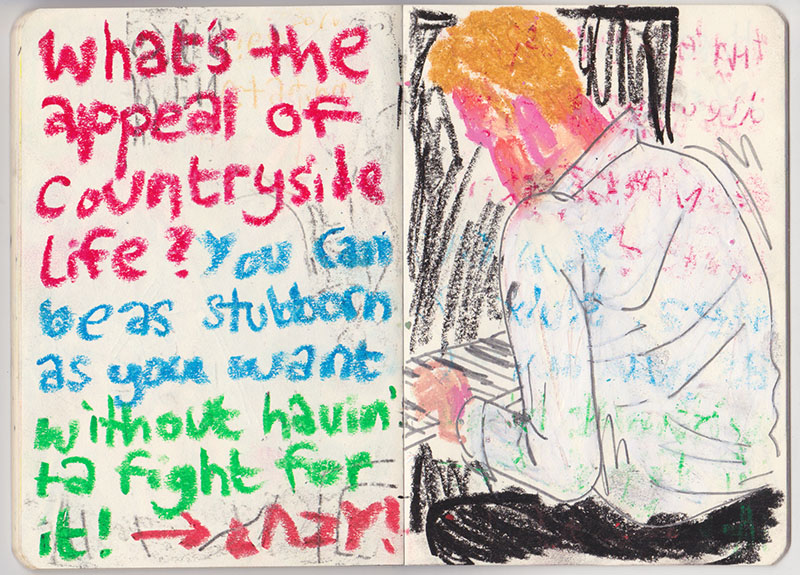 What's the
appeal of
countryside
life? You can
be as stubborn
as you want
without havin'
ta fight for
it! →